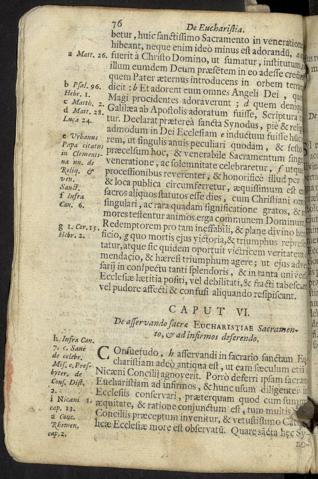 76
De Eucharistia.
betur, huic sanctissimo Sacramento in veneratione
hibeant, neque enim ideò minus est adorandū,
a Matt. 26.
fuerit à Christo Domino, ut sumatur, institutum
illum eumdem Deum præsētem in eo adesse crede
quem Pater æternus introducens in orbem
b Psal. 96.
Hebr. 1.
dicit: b Et adorent eum omnes Angeli Dei,
c Matth. 2.
Magi procidentes adoraverunt; d quem denique
d Matt. 28.
Luca 24.
Galilæa ab Apostolis adoratum fuisse, Scriptura
tur. Declarat præterea sancta Synodus, piè & relig
admodum in Dei Ecclesiam e inductum fuisse
e Urbanus
Papa citatus
in Clementi-
na un. de
Reliq. &
ven.
Sanct.
rem, ut singulis annis peculiari quodam, & festo
præcelsum hoc, & venerabile Sacramentum sing
veneratione, ac solemnitate celebraretur, f utque
processionibus reverenter, & honorificè illud per
& loca publica circumferretur, æquissimum est
f Infra
Can. 6.
sacros aliquos statutos esse dies, cum Christiani
singulari, ac rara quadam significatione gratos, &
mores testentur animos erga communem Dominum
Redemptorem pro tam ineffabili, & plane divino
g 1. Cor. 15.
Hebr. 2.
ficio, g quo mortis ejus victoria, & triumphus repræ
tatur, atque sic quidem oportuit victricem veritatem
mendacio, & hæresi triumphum agere; ut ejus adver
sarij in conspectu tanti splendoris, & in tanta uni
Ecclesiæ lætitia positi, vel debilitati, & fracti tabescant
vel pudore affecti & confusi aliquando resipiscant.
CAPUT VI.
De asservando sacræ EUCHARISTIAE Sacramen-
to, & ad infirmos deferendo.
h Infra Can.
7. c. Sanè
de celebr.
Miss. c. Pres-
byter. de
Cons. Dist.
2.
Consuetudo, h asservandi in sacrario sanctam Eu-
charistiam adeò antiqua est, ut eam sæculum etiam
Nicæni Concilij agnoverit. Porrò deferri ipsam sacram
Eucharistiam ad infirmos, & hunc usum diligenter in
Ecclesiis conservari, præterquam quod cum summa
i Nicæni 1.
cap. 13.
æquitate, & ratione conjunctum est, tum multis
Concilijs præceptum invenitur, & vetustissimo Catho-
Rhemen.
cap. 2.
licæ Ecclesiæ more est observatū. Quare sancta hæc Sy-